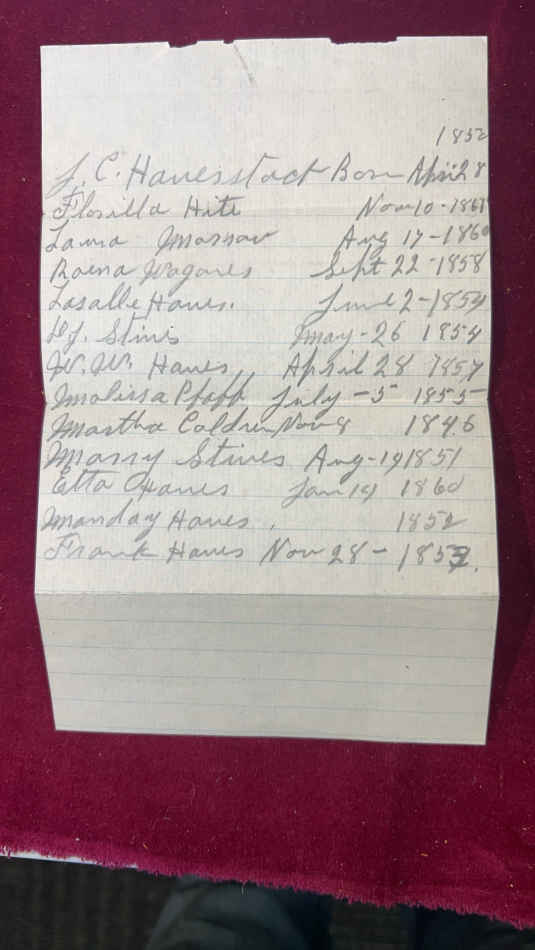 1852
J. C. Hauesstact Born April 28
Florilla Hite Nov 10 - 1861
Laura Morrow Aug 17 - 1860
Roena Wagones Sept 22 - 1858
Lasalle Hanes. June 2 - 1854
Stins May - 26 1854
W. W. Hanes, April 28 1857
Malissa Pfaff July - 5 1855
Martha Coldren Nov 8 1846
Marry Stines Aug - 19 1851
Etta Hanes Jan 19 1860
Manday Hanes, 1852
Frank Hanes Nov 28 - 1853.